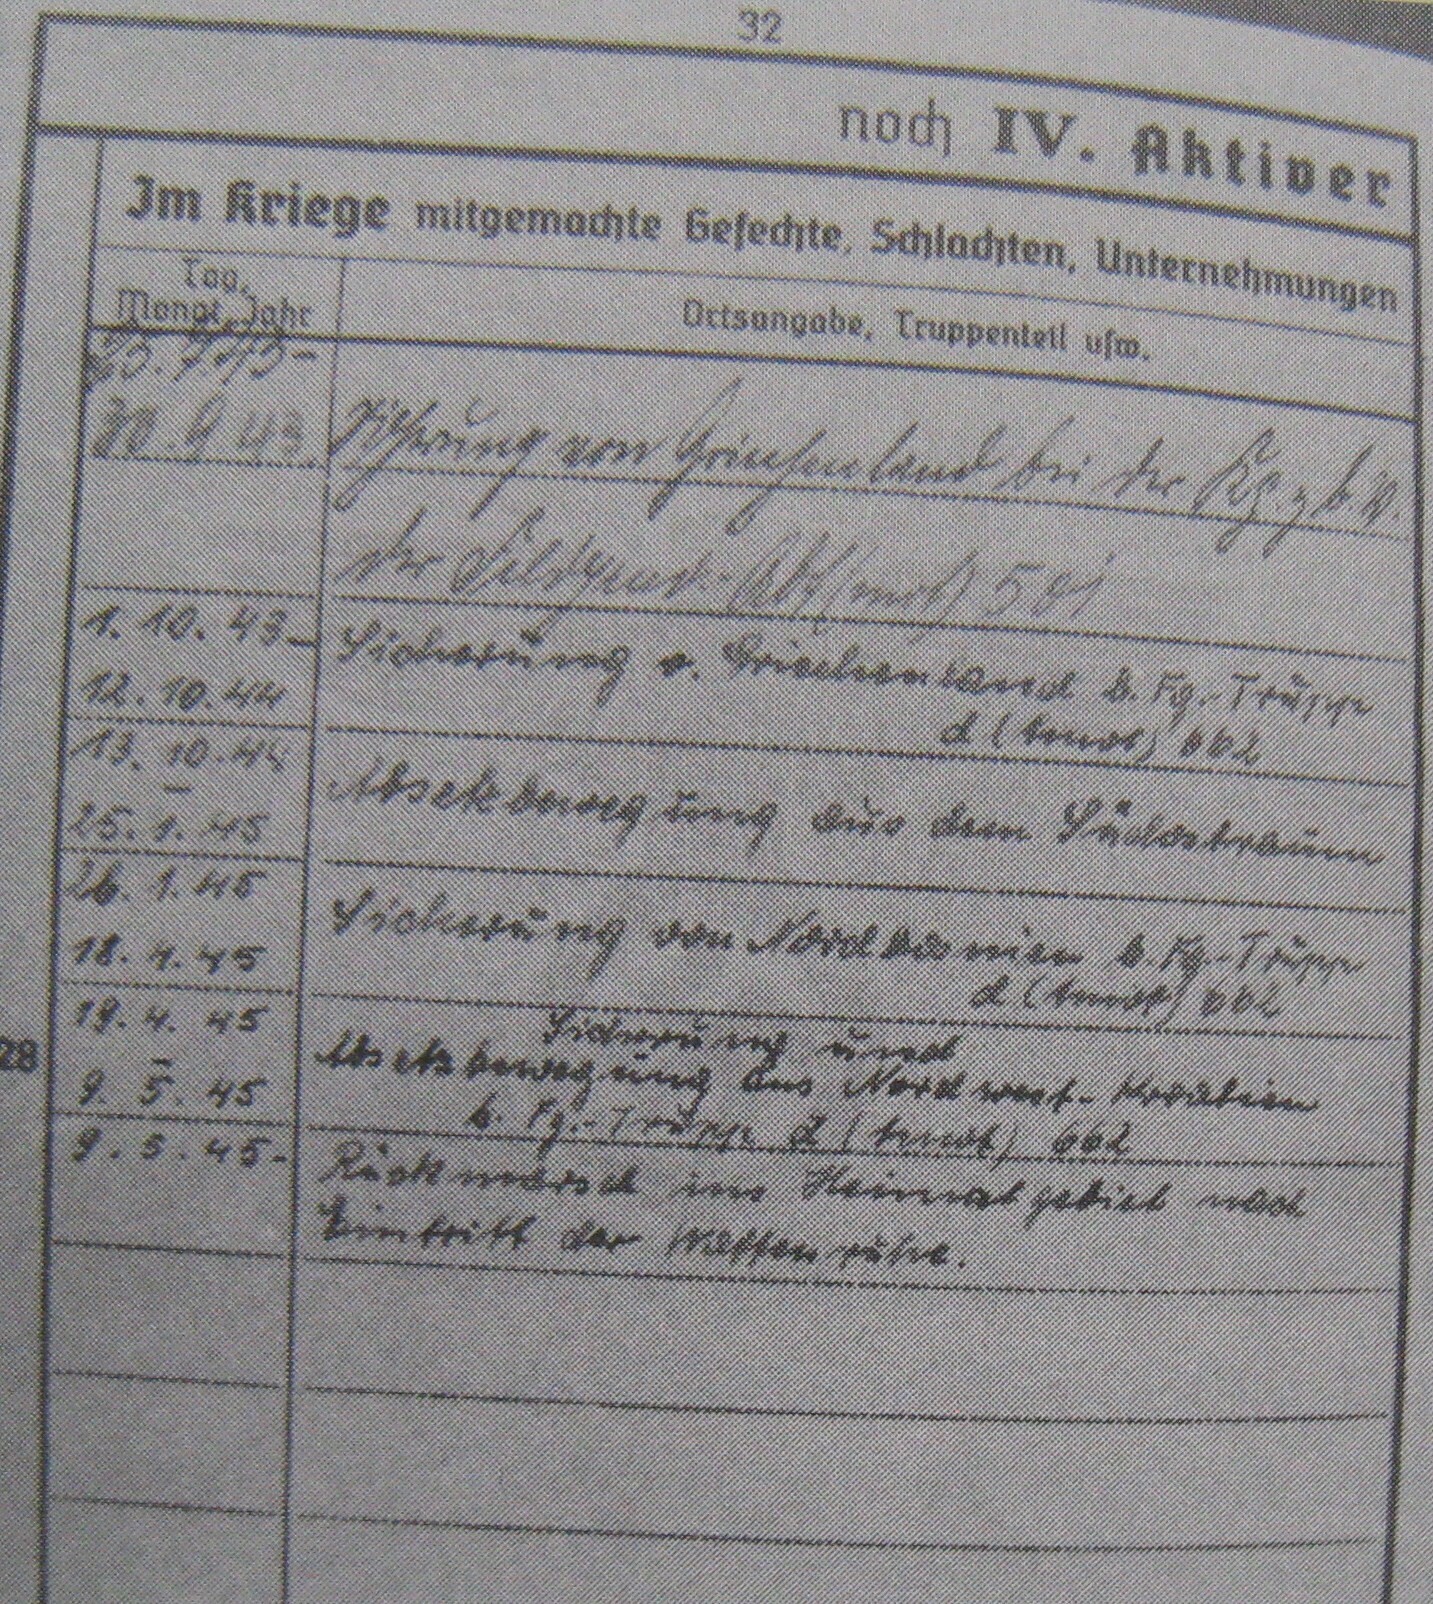 32
noch IV. Aktiver
Im Kriege mitgemachte Gefechte, Schlachten, Unternehmungen
Tag,
Monat, Jahr
Ortsangabe, Truppenteil usw.
23.7.43-
30.9.43 Sicherung von Griechenland bei der Kg. z.b.V.
der Feldgend.-Abt. (mot) 501
1.10.43- Sicherung v. Griechenland b. Fg.-Trupp
12.10.44 d (tmot) 662
13.10.44
– Absetzbewegung aus dem Südostraum
25.1.45
26.1.45 Sicherung von Nordbosnien b. Fg.-Trupp
18.4.45 d (tmot) 662
19.4.45 Sicherung und
28 – Absetzbewegung aus Nordwest-Kroatien
9.5.45 b. Fg.-Trupp d (tmot) 662
9.5.45- Rückmarsch ins Heimatgebiet nach
Eintritt der Waffenruhe.